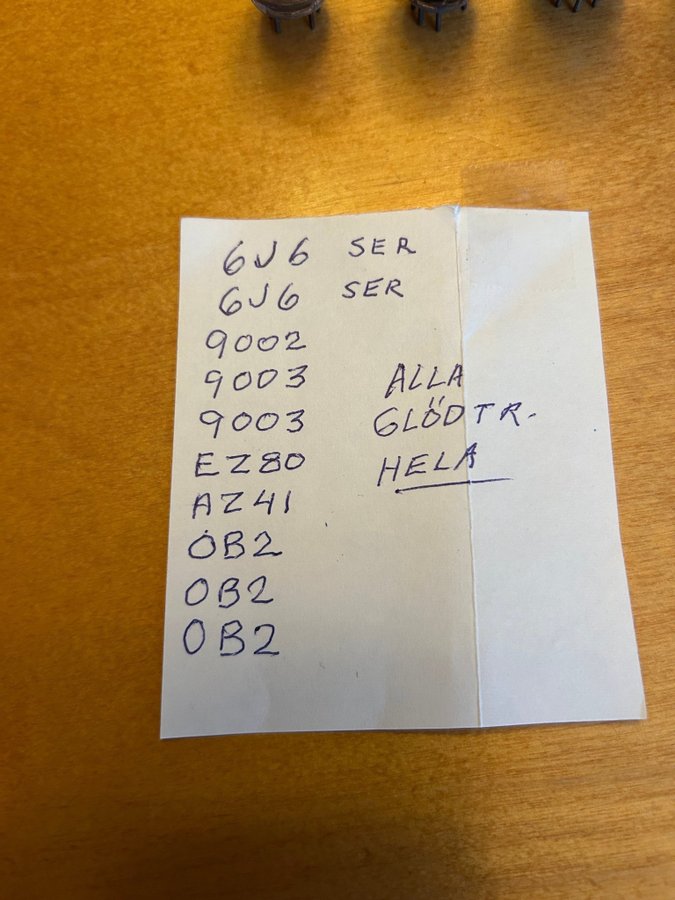 6J6 SER
6J6 SER
9002
9003
9003
EZ80
AZ41
OB2
OB2
OB2
ALLA
GLÖDTR.
HELA